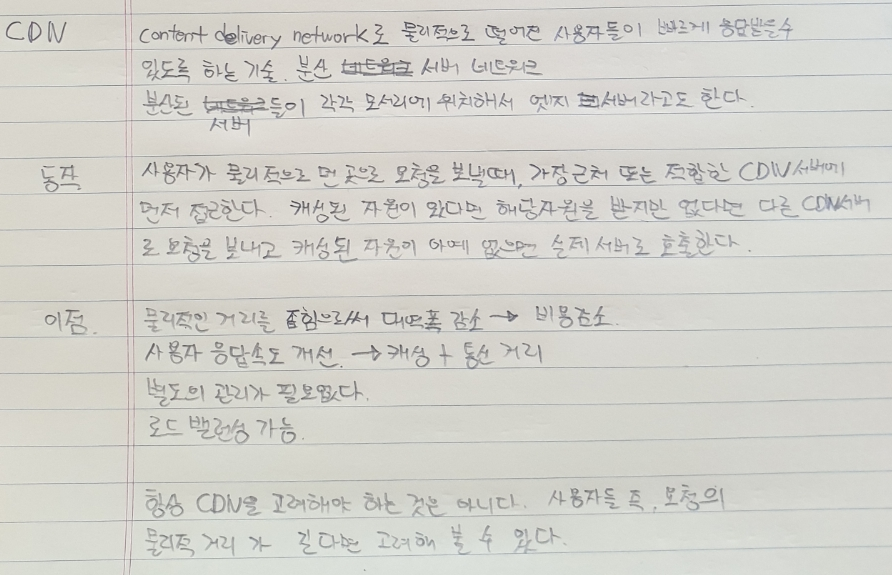 CDN content delivery network로 물리적으로 떨어진 사용자들이 빠르게 응답받을수
있도록 하는 기술. 분산 네트워크 서버 네트워크
분산된 네트워크들이 각각 모서리에 위치해서 엣지 서버라고도 한다.
서버
동작 사용자가 물리적으로 먼 곳으로 요청을 보낼때, 가장근처 또는 적합한 CDN서버에
먼저 접근한다. 캐싱된 자원이 있다면 해당자원을 받지만 없다면 다른 CDN서버
로 요청을 보내고 캐싱된 자원이 아예 없으면 실제 서버로 호출한다.
이점. 물리적인 거리를 좁힘으로써 대역폭 감소 → 비용감소.
사용자 응답속도 개선. → 캐싱 + 통신 거리
별도의 관리가 필요없다.
로드 밸런싱 가능.
항상 CDN을 고려해야 하는 것은 아니다. 사용자들 즉, 요청의
물리적 거리가 길다면 고려해 볼 수 있다.